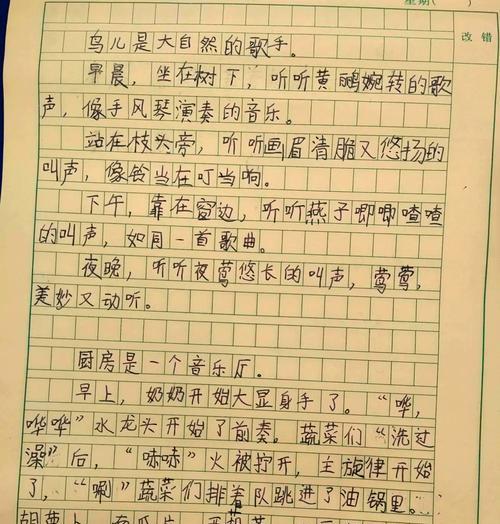 星期( )
改错
鸟儿是大自然的歌手。
早晨，坐在树下，听听黄鹂婉转的歌
声，像手风琴演奏的音乐。
站在枝头旁，听听画眉清脆又悠扬的
叫声，像铃当在叮当响。
下午，靠在窗边，听听燕子唧唧喳喳
的叫声，如同一首歌曲。
夜晚，听听夜莺悠长的叫声，莺莺，
美妙又动听。
厨房是一个音乐厅。
早上，奶奶开始大显身手了。“哗，
哗哗”水龙头开始了前奏。蔬菜们“洗过
澡”后，“哧哧”火被拧开，主旋律开始
了，“唰”蔬菜们排着队跳进了油锅里。
胡萝卜